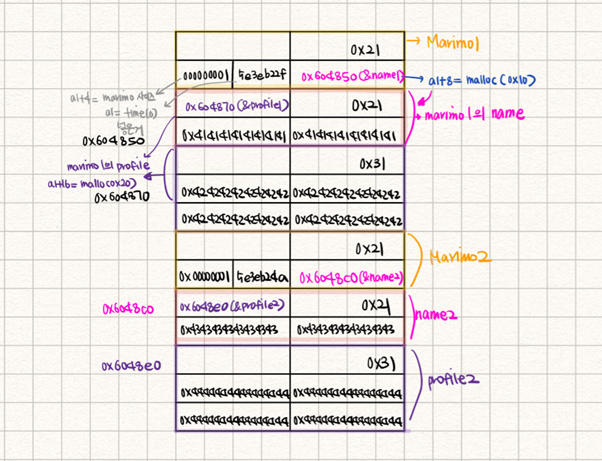 0x21
Marimo1
00000001 5e3eb22f 0x604850(&name1)
a1+8 = malloc(0x10)
a1+4 = marimo 사이즈
a1 = time(0)
넣은거
0x604870(&profile1) 0x21
marimo1의 name
0x604850
0x4141414141414141 0x4141414141414141
marimo1의 profile
a1+16 = malloc(0x20)
0x604870
0x31
0x4242424242424242 0x4242424242424242
0x4242424242424242 0x4242424242424242
0x21
Marimo2
0x00000001 5e3eb24a 0x6048c0(&name2)
0x6048c0
0x6048e0(&profile2) 0x21
name2
0x4343434343434343 0x4343434343434343
0x6048e0
0x31
profile2
0x4444444444444444 0x4444444444444444
0x4444444444444444 0x4444444444444444